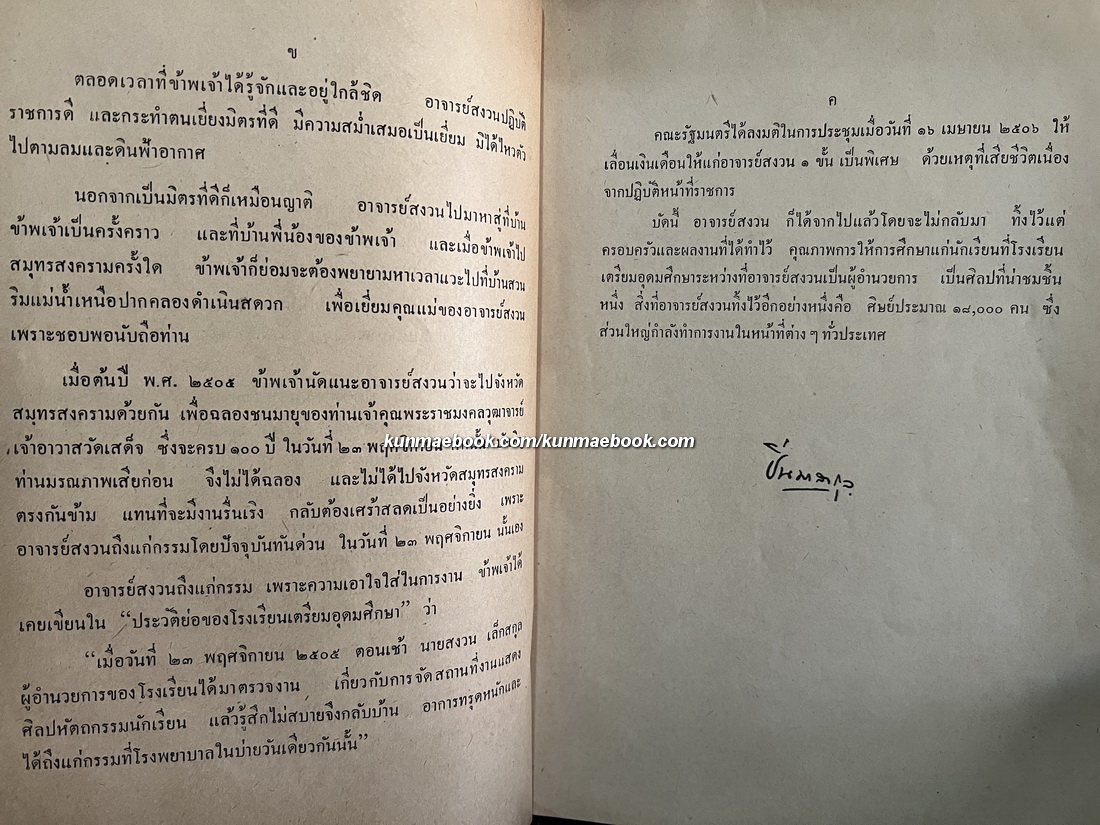 ข
ตลอดเวลาที่ข้าพเจ้าได้รู้จักและอยู่ใกล้ชิด อาจารย์สงวนปฏิบัติ
ราชการดี และกระทำตนเยี่ยงมิตรที่ดี มีความสม่ำเสมอเป็นเยี่ยม มิได้ไหวตัว
ไปตามลมและดินฟ้าอากาศ
นอกจากเป็นมิตรที่ดีก็เหมือนญาติ อาจารย์สงวนไปมาหาสู่ที่บ้าน
ข้าพเจ้าเป็นครั้งคราว และที่บ้านพี่น้องของข้าพเจ้า และเมื่อข้าพเจ้าไป
สมุทรสงครามครั้งใด ข้าพเจ้าก็ย่อมจะต้องพยายามหาเวลาแวะไปที่บ้านสวน
ริมแม่น้ำเหนือปากคลองดำเนินสดวก เพื่อเยี่ยมคุณแม่ของอาจารย์สงวน
เพราะชอบพอนับถือท่าน
เมื่อต้นปี พ.ศ. ๒๕๐๕ ข้าพเจ้านัดแนะอาจารย์สงวนว่าจะไปจังหวัด
สมุทรสงครามด้วยกัน เพื่อฉลองชนมายุของท่านเจ้าคุณพระราชมงคลวุฒาจารย์
เจ้าอาวาสวัดเสด็จ ซึ่งจะครบ ๑๐๐ ปี ในวันที่ ๒๓
kunmaebook.com/kunmaebook.com
ท่านมรณภาพเสียก่อน จึงไม่ได้ฉลอง และไม่ได้ไปจังหวัดสมุทรสงคราม
ตรงกันข้าม แทนที่จะมีงานรื่นเริง กลับต้องเศร้าสลดเป็นอย่างยิ่ง เพราะ
อาจารย์สงวนถึงแก่กรรมโดยปัจจุบันทันด่วน ในวันที่ ๒๓ พฤศจิกายน นั้นเอง
อาจารย์สงวนถึงแก่กรรม เพราะความเอาใจใส่ในการงาน ข้าพเจ้าได้
เคยเขียนใน “ประวัติย่อของโรงเรียนเตรียมอุดมศึกษา” ว่า
“เมื่อวันที่ ๒๓ พฤศจิกายน ๒๕๐๕ ตอนเช้า นายสงวน เล็กสกุล
ผู้อำนวยการของโรงเรียนได้มาตรวจงาน เกี่ยวกับการจัดสถานที่งานแสดง
ศิลปหัตถกรรมนักเรียน แล้วรู้สึกไม่สบายจึงกลับบ้าน อาการทรุดหนักและ
ได้ถึงแก่กรรมที่โรงพยาบาลในบ่ายวันเดียวกันนั้น”
ค
คณะรัฐมนตรีได้ลงมติในการประชุมเมื่อวันที่ ๑๖ เมษายน ๒๕๐๖ ให้
เลื่อนเงินเดือนให้แก่อาจารย์สงวน ๑ ขั้น เป็นพิเศษ ด้วยเหตุที่เสียชีวิตเนื่อง
จากปฏิบัติหน้าที่ราชการ
บัดนี้ อาจารย์สงวน ก็ได้จากไปแล้วโดยจะไม่กลับมา ทิ้งไว้แต่
ครอบครัวและผลงานที่ได้ทำไว้ คุณภาพการให้การศึกษาแก่นักเรียนที่โรงเรียน
เตรียมอุดมศึกษาระหว่างที่อาจารย์สงวนเป็นผู้อำนวยการ เป็นศิลปที่น่าชมชื่น
หนึ่ง สิ่งที่อาจารย์สงวนทิ้งไว้อีกอย่างหนึ่งคือ ศิษย์ประมาณ ๑๘,๐๐๐ คน ซึ่ง
ส่วนใหญ่กำลังทำการงานในหน้าที่ต่าง ๆ ทั่วประเทศ
ปิ่น มาลากุล